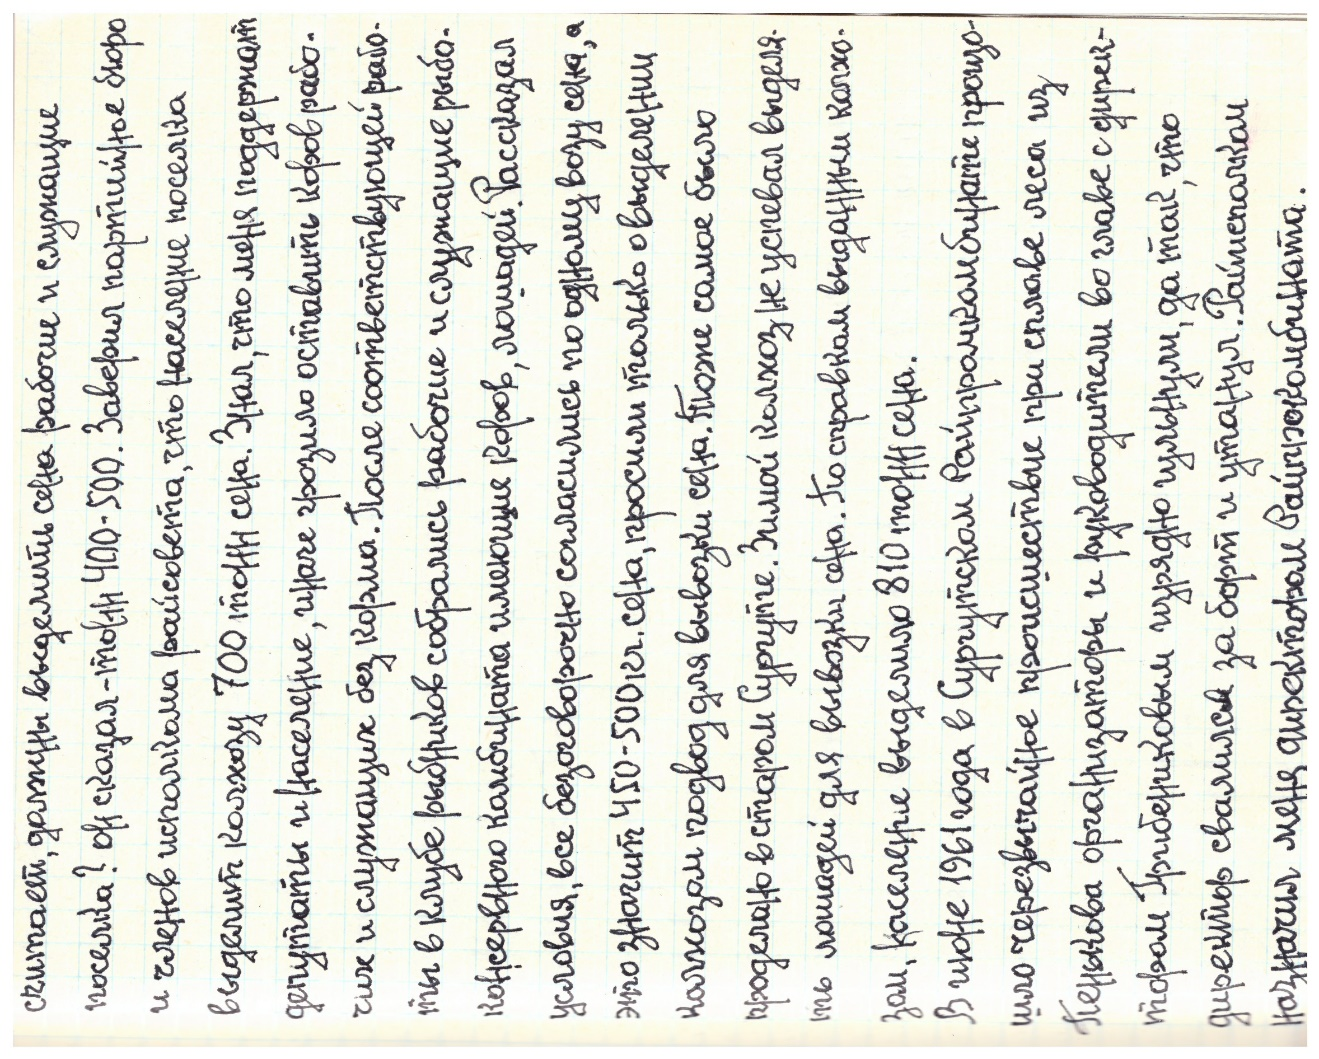 считает, должны выделить сена рабочие и служащие
поселка? он сказал-тонн 400-500. Заверил партийное бюро
и членов исполкома райсовета, что население поселка
выделит колхозу 700 тонн сена. Знал, что меня поддержат
депутаты и население, иначе грозило оставить коров рабо-
чих и служащих без корма. После соответствующей рабо-
ты в клубе рыбников собрались рабочие и служащие рыбо-
консервного комбината имеющие коров, лошадей. Рассказал
условия, все безоговорочно согласились по одному возу сена, а
это значит 450-500 кг. сена, просили только о выделении
колхозом подвод для вывозки сена. Тоже самое было
проделано в старом Сургуте. Зимой колхоз не успевал выделя-
ть лошадей для вывозки сена. По справкам выданным колхо-
зом, население выделило 810 тонн сена.
В июне 1961 года в Сургутском Райпромкомбинате произо-
шло черезвычайное происшествие при сплаве леса из
Пенькова организаторы и руководители во главе с дирек-
тором Грибенниковым изрядно гульнули, да так, что
директор свалился за борт и утанул. Райисполком
назначил меня директором Райпромкомбината.